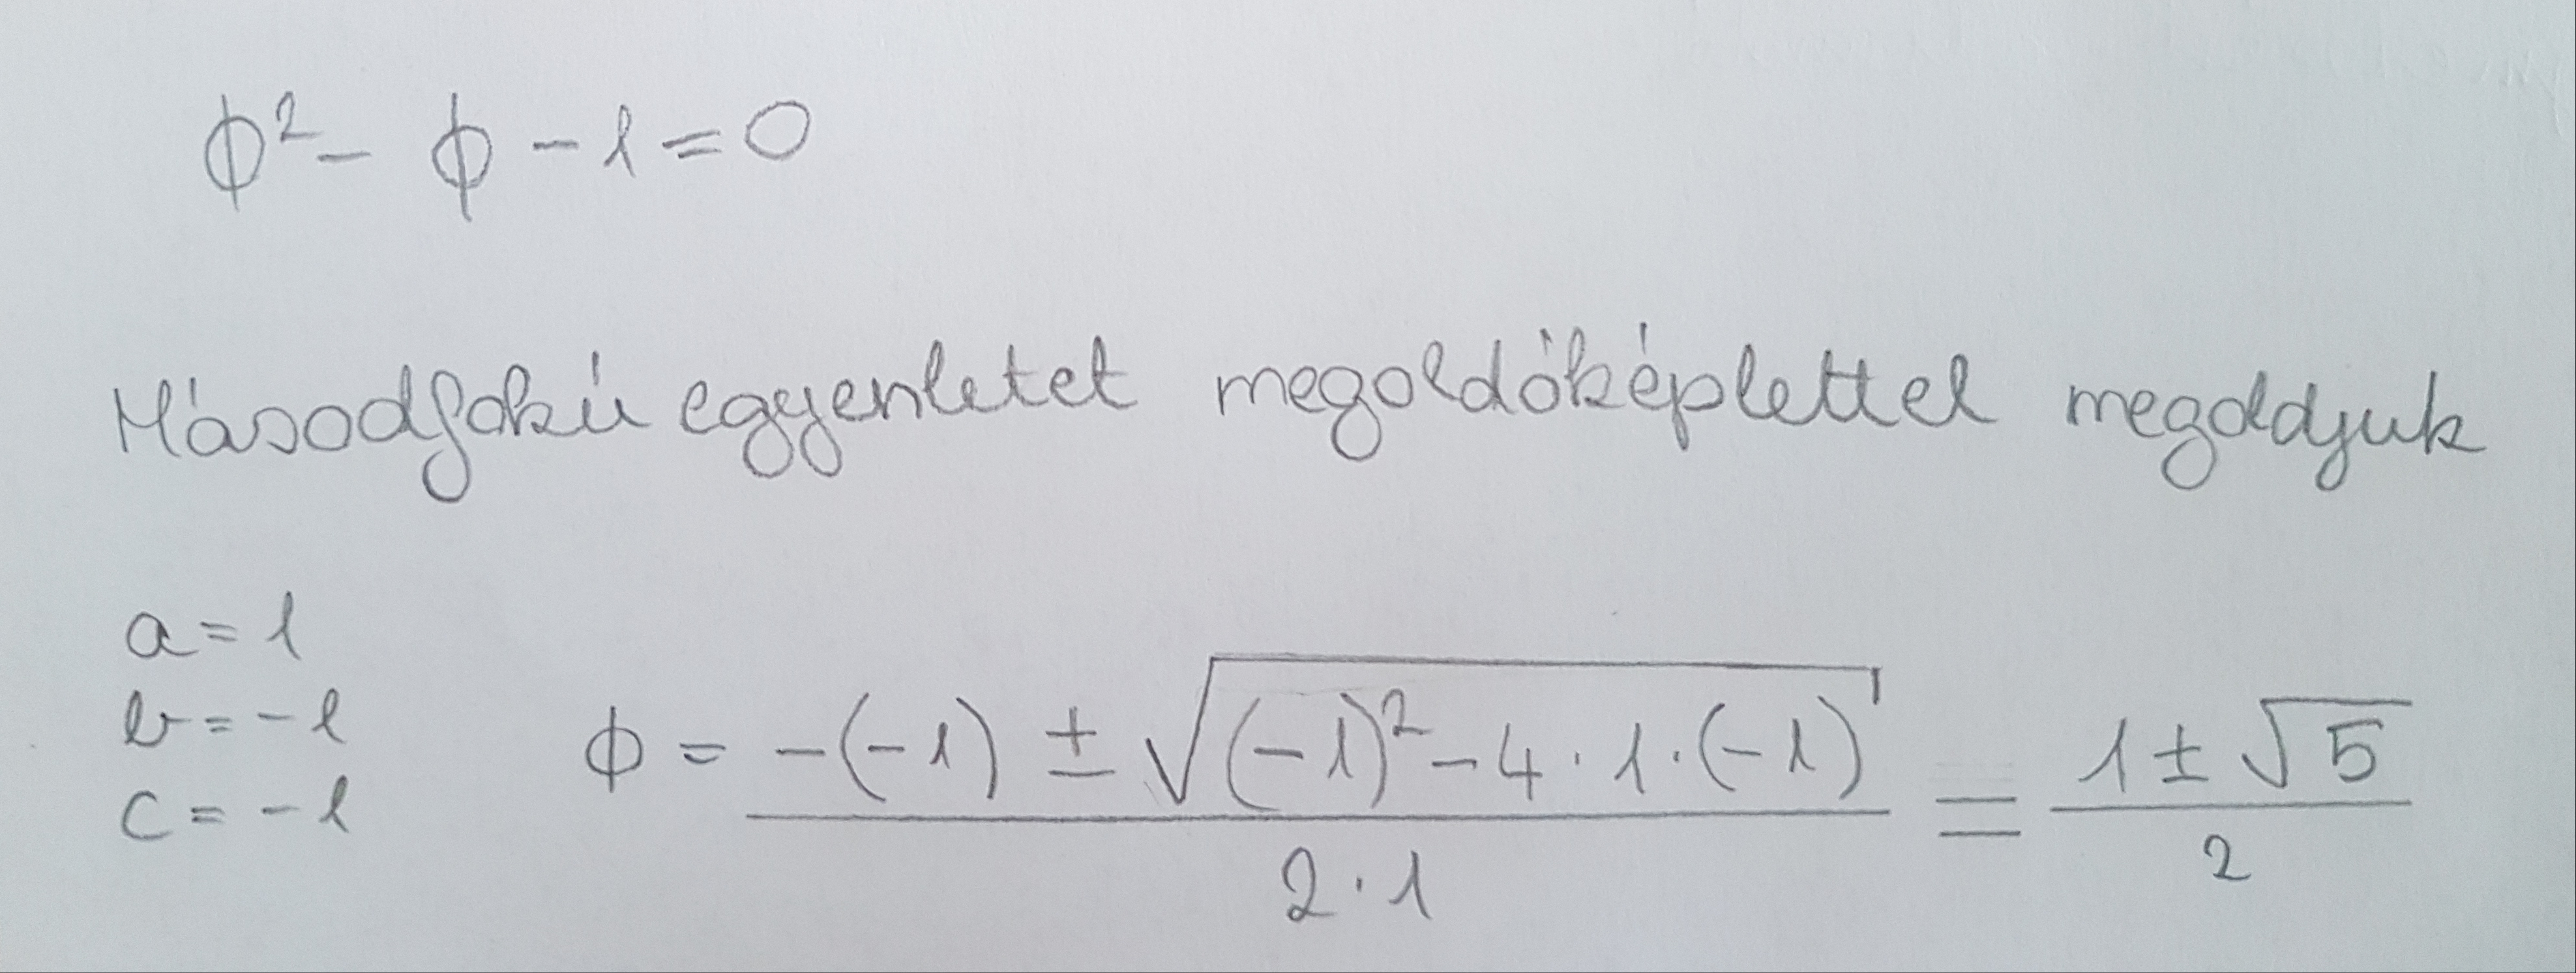 ϕ² - ϕ - 1 = 0
Másodfokú egyenletet megoldóképlettel megoldjuk
a = 1
b = -1
c = -1
ϕ = (-(-1) ± √((-1)² - 4 · 1 · (-1))) / (2 · 1) = (1 ± √5) / 2